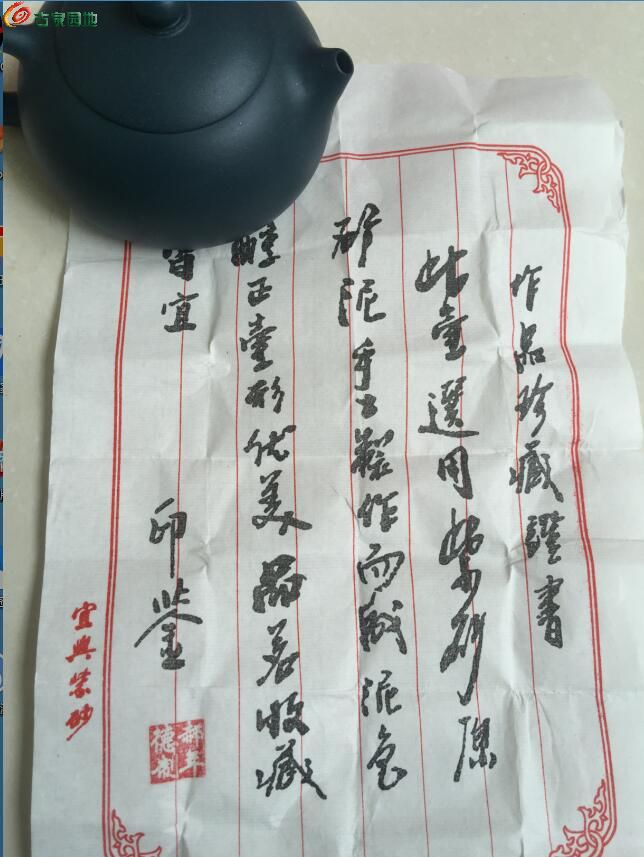 古泉园地
作品珍藏證書
此壺選用紫砂原
矿泥手工製作而成泥色
醇正壺形优美品茗收藏
皆宜
印鉴
宜興紫砂